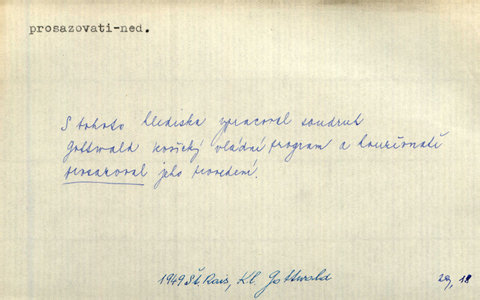 prosazovati-ned.
S tohoto hlediska zpracoval soudruh
Gottwald košický vládní program a houževnatě
prosazoval jeho provedení.
1949 Št. Rais, Kl. Gottwald
29, 18